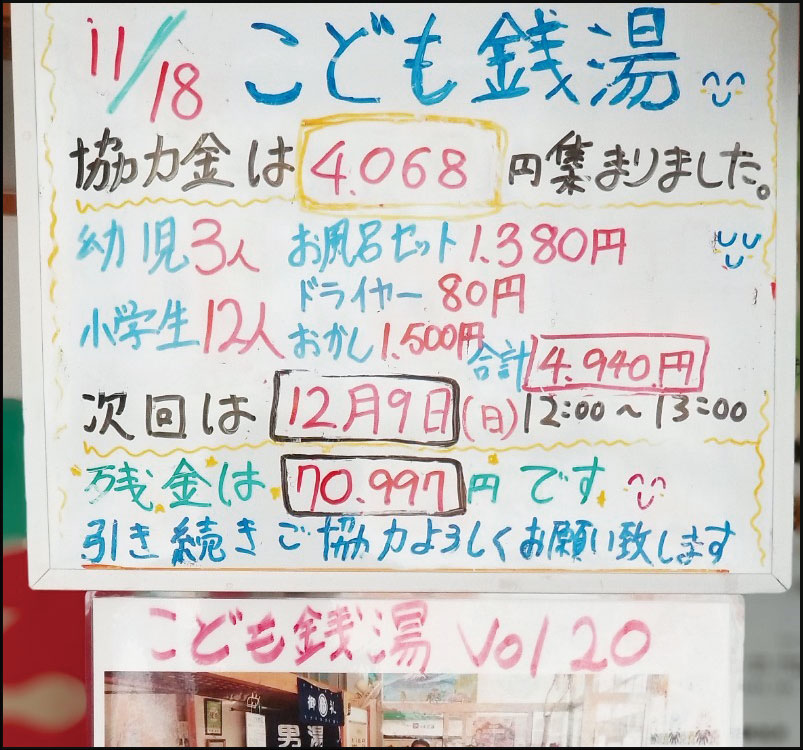 11/18 こども銭湯
協力金は 4.068 円集まりました。
幼児3人 お風呂セット 1.380円
ドライヤー 80円
小学生12人 おかし 1.500円 合計 4.940.円
次回は 12月9日(日)12:00~13:00
残金は 70.997 円です
引き続きご協力よろしくお願い致します
こども銭湯 Vol 20
御 礼
男湯